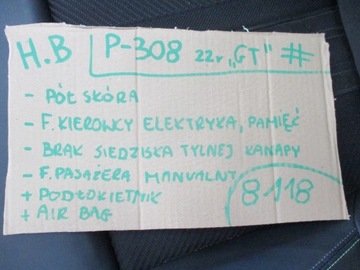 H.B P-308 22r „GT" #
- PÓŁ SKÓRA
- F. KIEROWCY ELEKTRYKA, PAMIĘĆ
- BRAK SIEDZISKA TYLNEJ KANAPY
- F. PASAŻERA MANUALNY
+ PODŁOKIETNIK
+ AIR BAG
8118